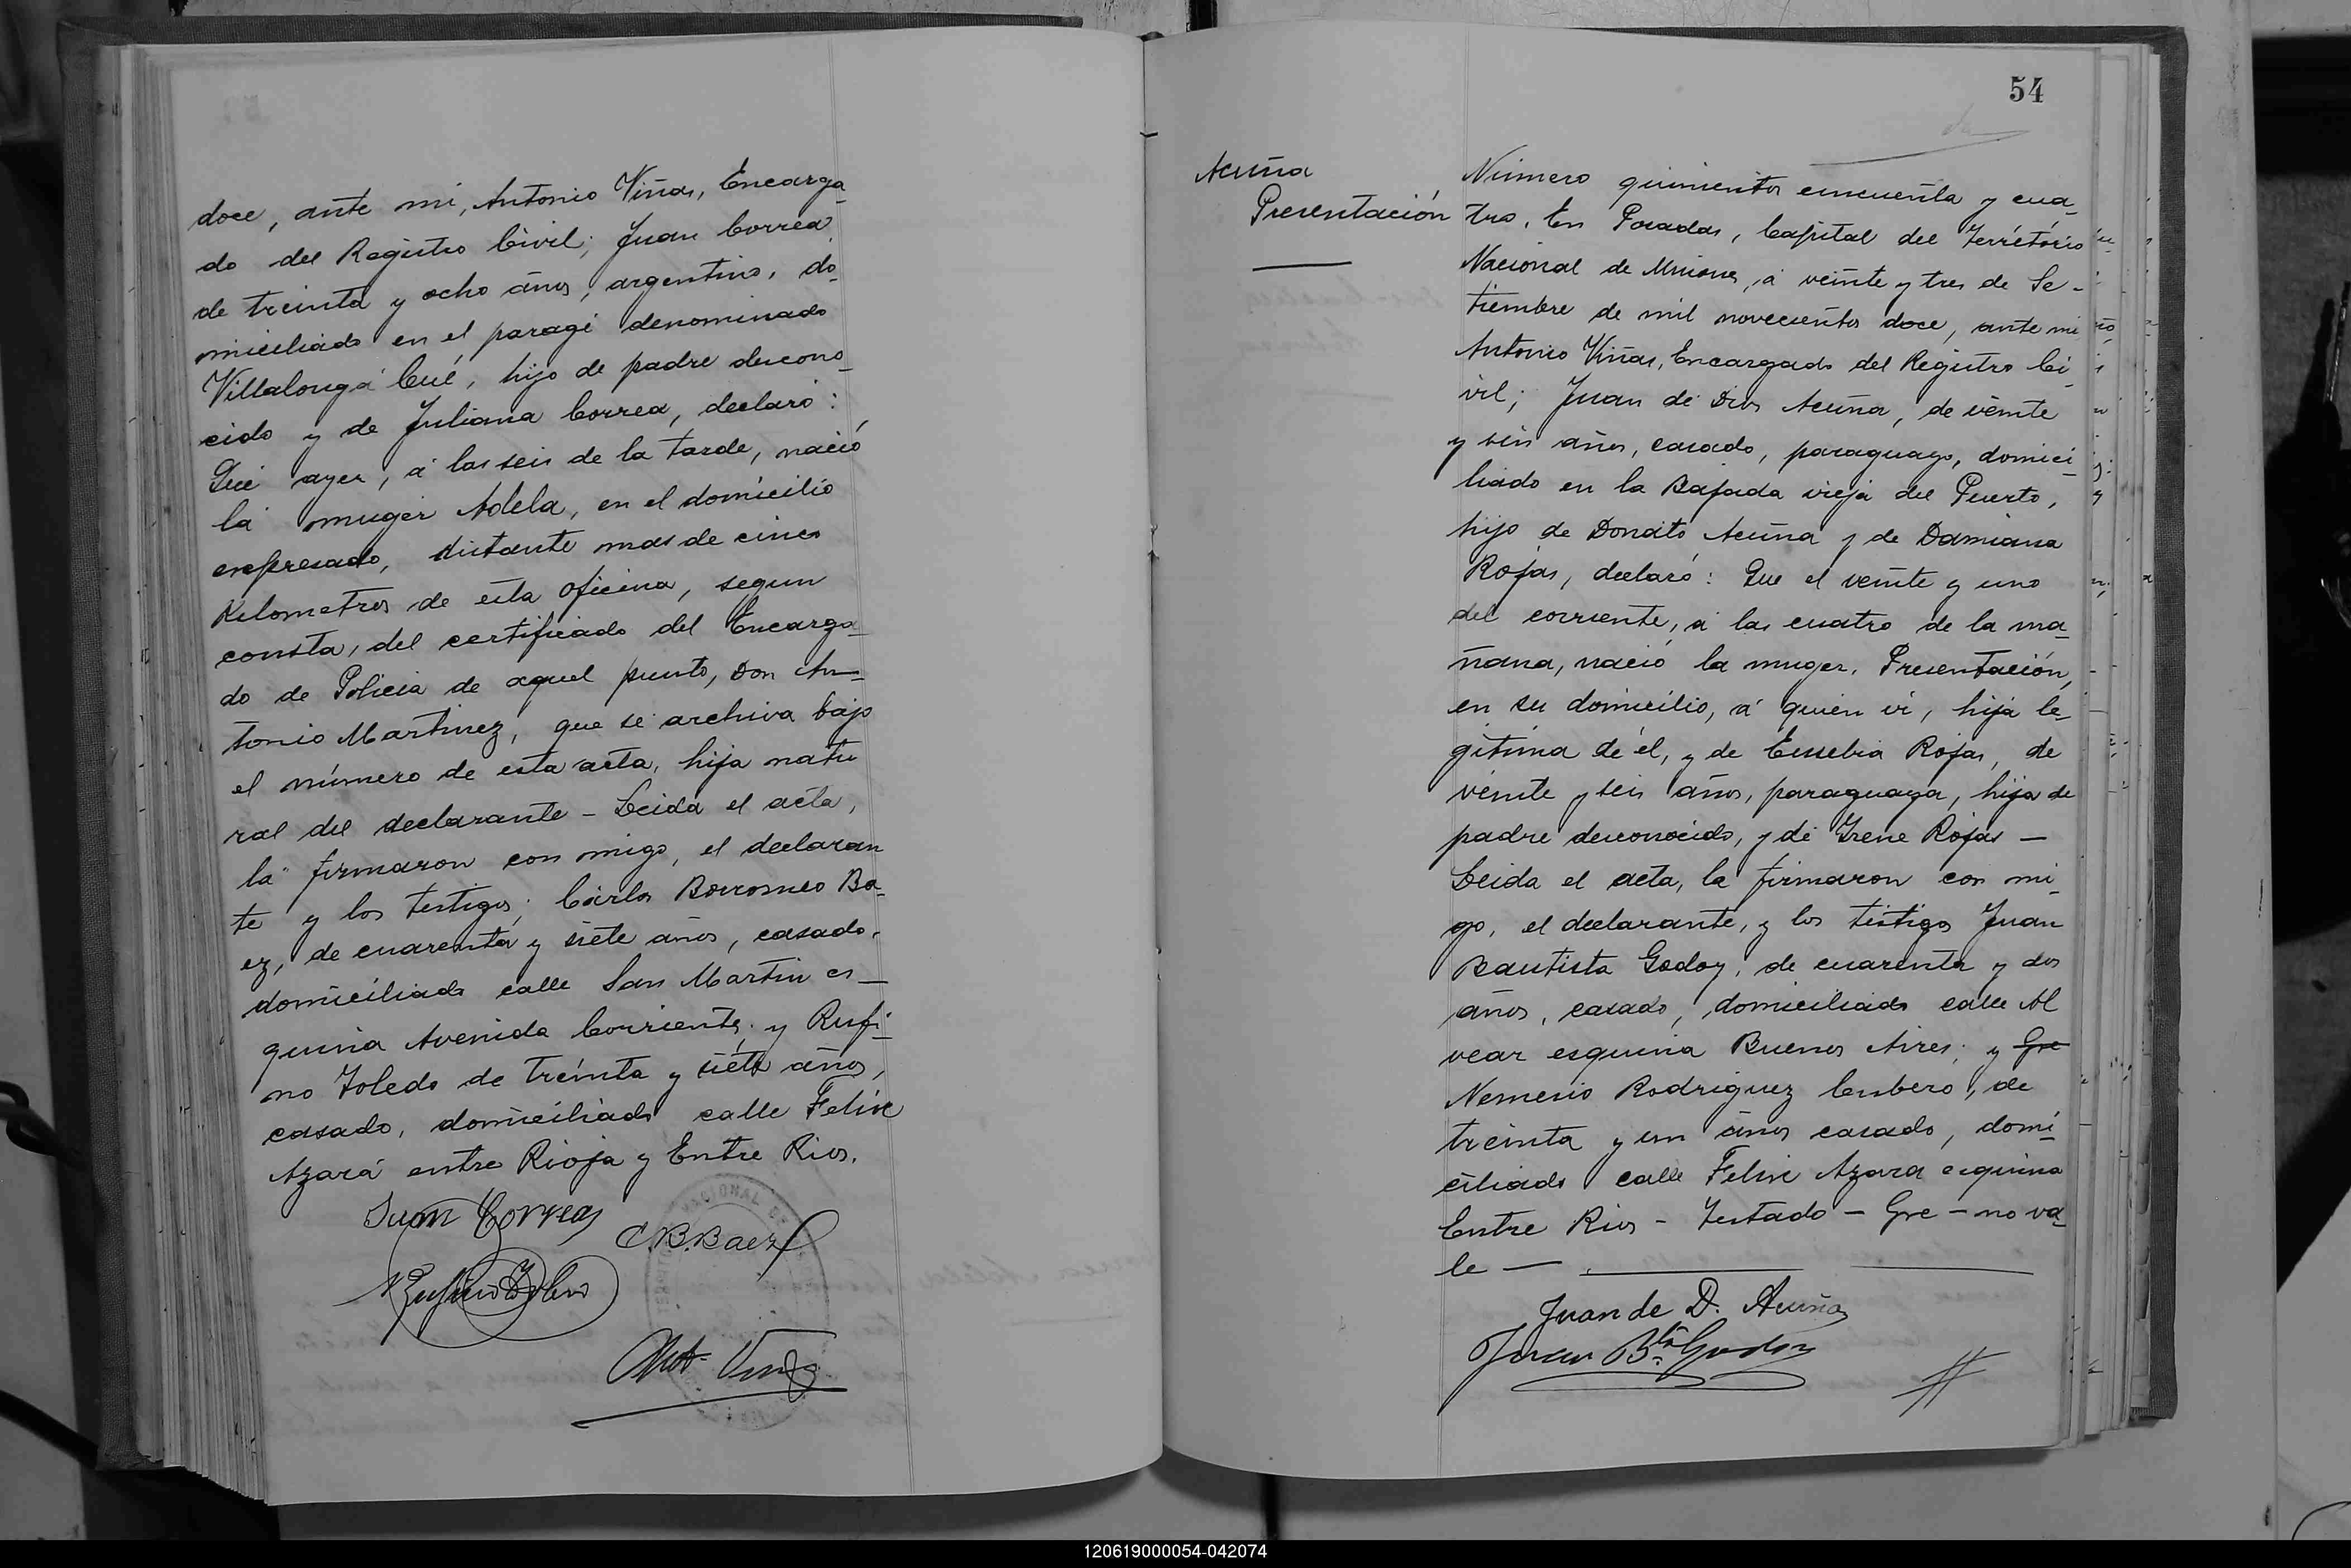 doce, ante mi, Antonio Viñas, Encarga_
do del Registro Civil; Juan Correa
de treinta y ocho años, argentino, do_
miciliado en el parage denominado
Villalonga Cué, hijo de padre descono_
cido y de Juliana Correa, declaró:
Que ayer, á las seis de la tarde, nació
la muger Adela, en el domicilio
expresado, distante mas de cinco
Kilometros de esta oficina, segun
consta, del certificado del Encarga_
do de Policia de aquel punto, Don An_
tonio Martinez, que se archiva bajo
el número de esta acta, hija natu
ral del declarante - Leida el acta,
la firmaron con migo, el declaran
te y los testigos; Cárlos Borromeo Ba_
ez, de cuarenta y siete años, casado,
domiciliado calle San Martin es_
quina Avenida Corrientes; y Rufi_
no Toledo de treinta y siete años,
casado, domiciliado calle Felix
Azará entre Rioja y Entre Rios.
Juan Correa
C.B.Baez
Rufino Toledo
Ant. Viñas
NACIONAL DE
54
Acuña
Presentación
Número quinientos cincuenta y cua_
tro. En Posadas, Capital del Território
Nacional de Misiones, á veinte y tres de Se-
tiembre de mil novecientos doce, ante mi
Antonio Viñas, Encargado del Registro Ci_
vil; Juan de Dios Acuña, de veinte
y seis años, casado, paraguayo, domici_
liado en la Bajada vieja del Puerto,
hijo de Donato Acuña y de Damiana
Rojas, declaró: Que el veinte y uno
del corriente, á las cuatro de la ma_
ñana, nació la muger, Presentación,
en su domicilio, á quien vi, hija le_
gitima de él, y de Eusebia Rojas, de
veinte y seis años, paraguaya, hija de
padre desconocido, y de Irene Rojas —
Leida el acta, la firmaron con mi_
go, el declarante, y los testigos Juan
Bautista Godoy, de cuarenta y dos
años, casado, domiciliado calle Al
vear esquina Buenos Aires; y Gre
Nemesio Rodriguez Cubero, de
treinta y un años casado, domi_
ciliado calle Felix Azara esquina
Entre Rios - Testado - Gre - no va_
le —
Juan de D. Acuña
Juan Bta. Godoy
120619000054-042074